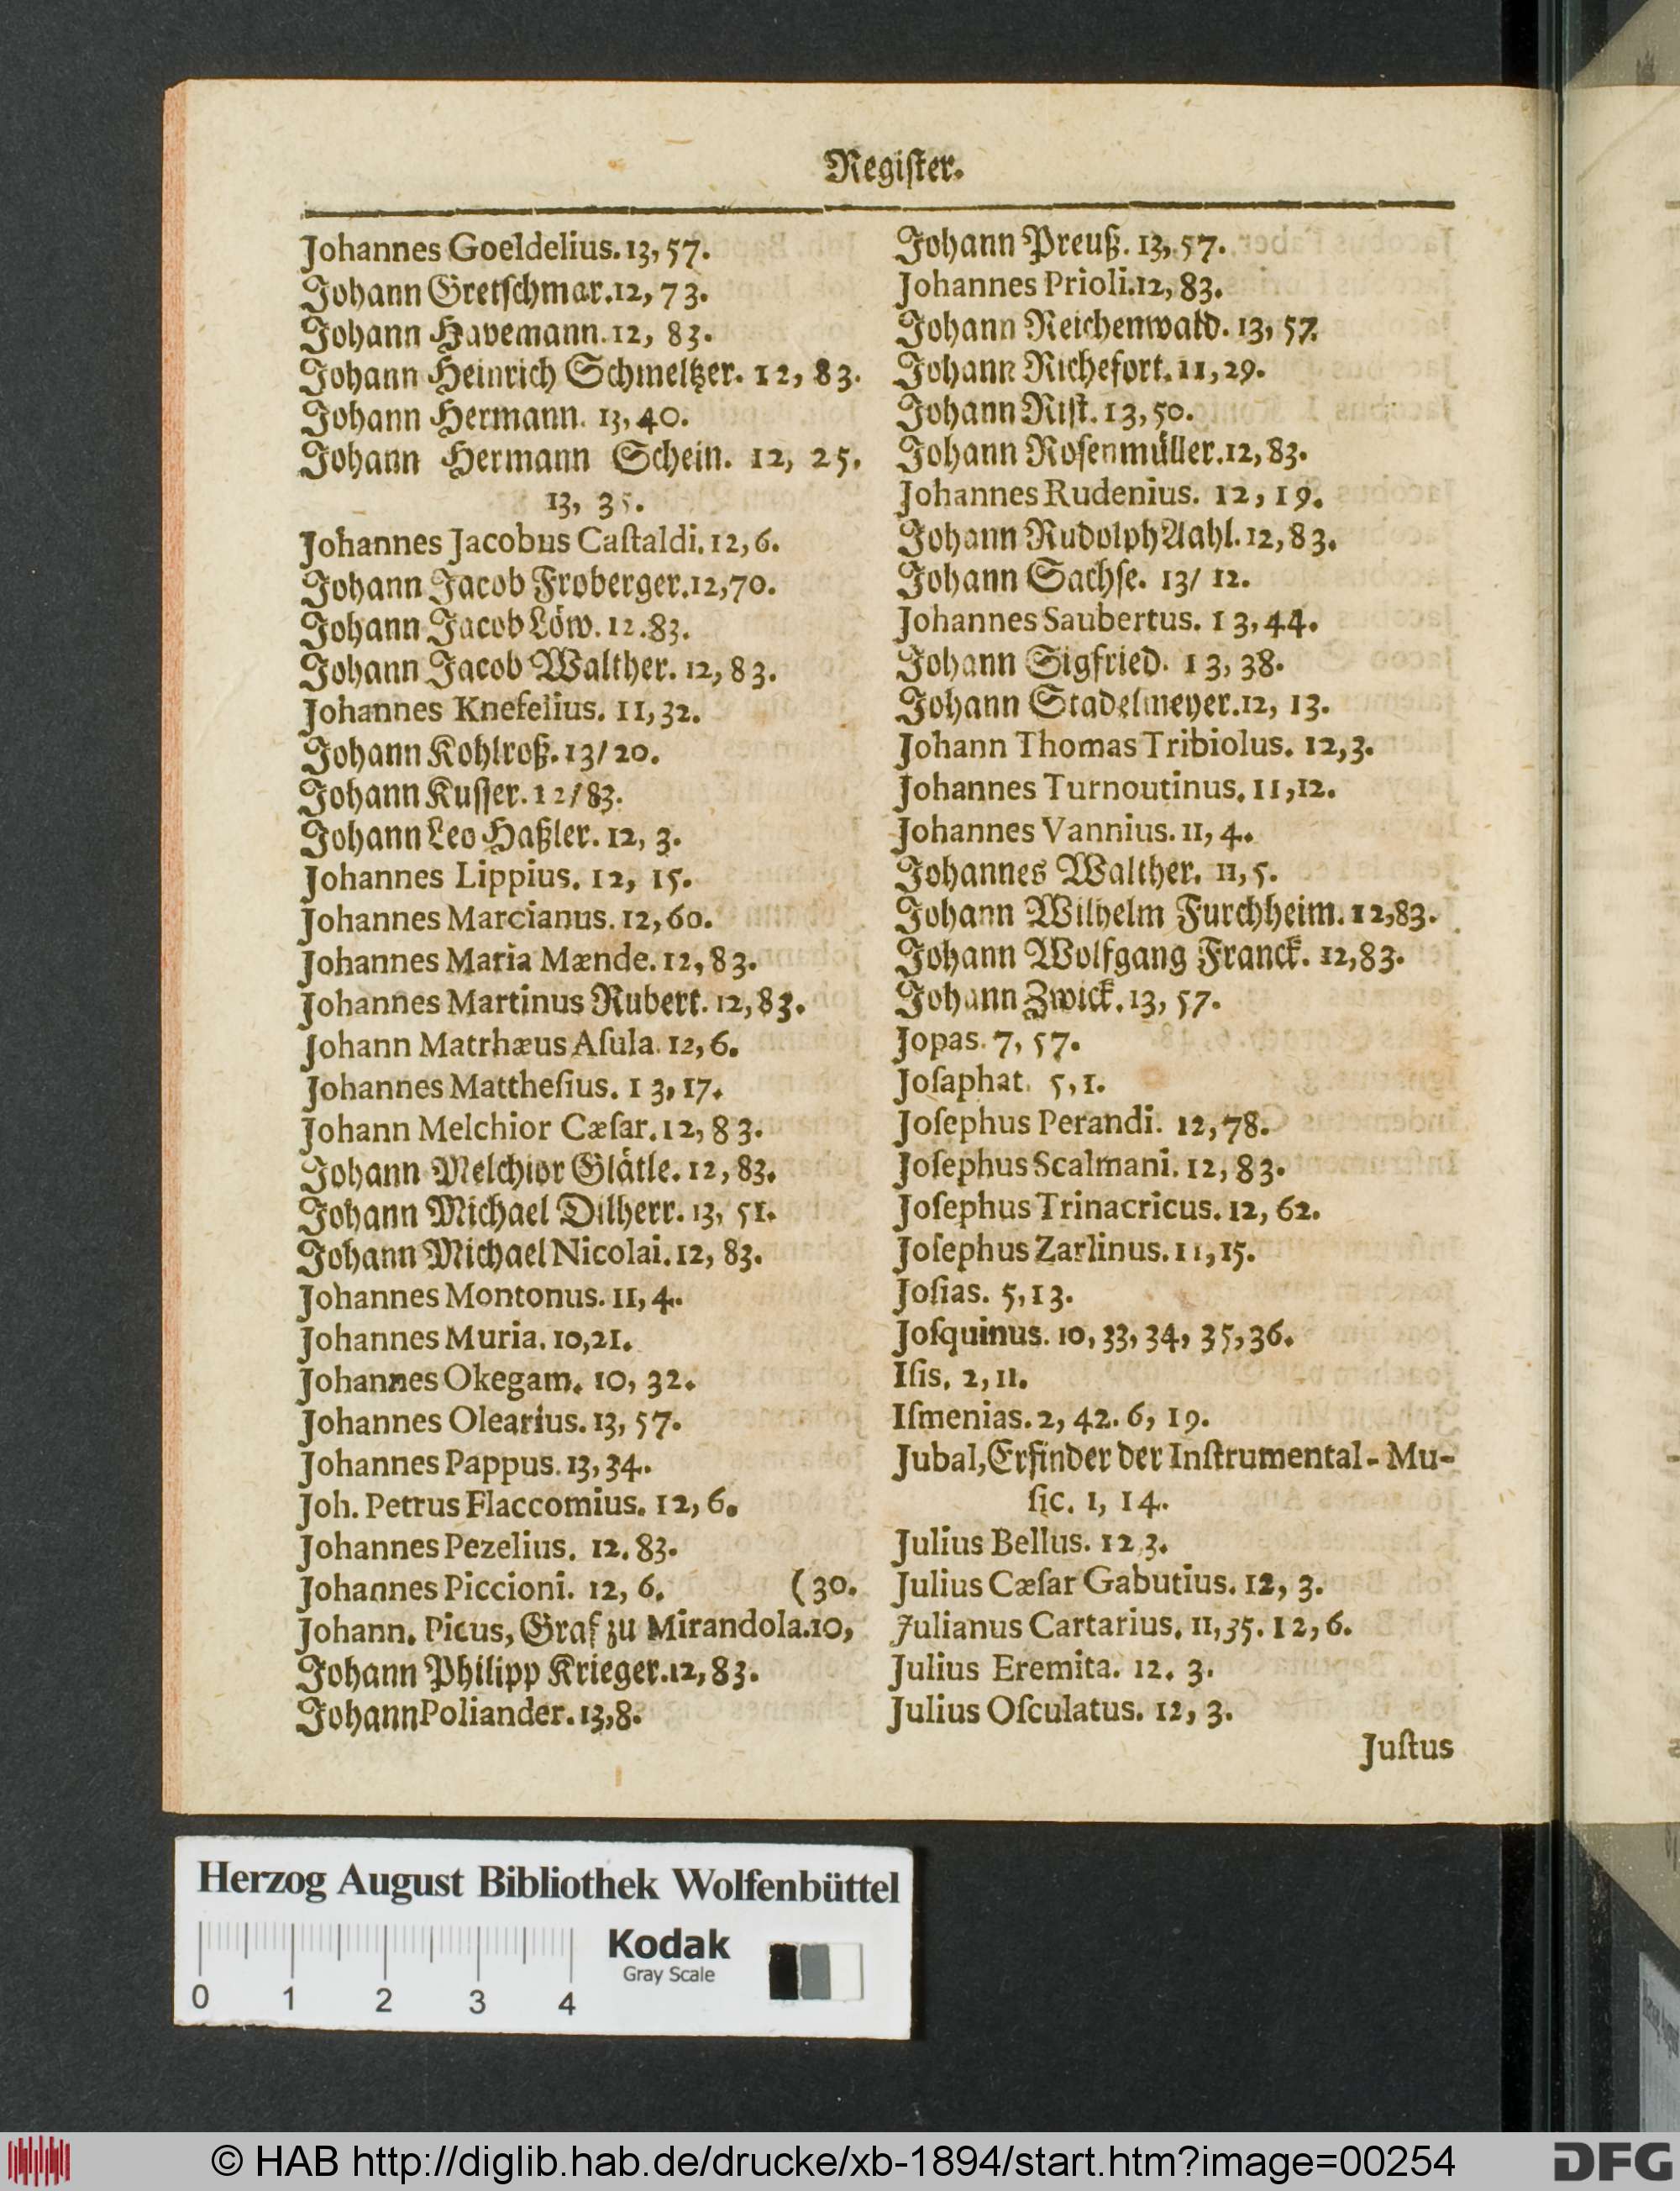 Regiſter.
Johannes Goeldelius. 13, 57.
Johann Gretſchmar. 12, 73.
Johann Havemann. 12, 83.
Johann Heinrich Schmeltzer. 12, 83.
Johann Hermann. 13, 40.
Johann Hermann Schein. 12, 25.
13, 35.
Johannes Jacobus Caſtaldi. 12, 6.
Johann Jacob Froberger. 12, 70.
Johann Jacob Löw. 12. 83.
Johann Jacob Walther. 12, 83.
Johannes Knefelius. 11, 32.
Johann Kohlroß. 13/ 20.
Johann Kuſſer. 12/ 83.
Johann Leo Haßler. 12, 3.
Johannes Lippius. 12, 15.
Johannes Marcianus. 12, 60.
Johannes Maria Mænde. 12, 83.
Johannes Martinus Rubert. 12, 83.
Johann Matrhæus Aſula. 12, 6.
Johannes Mattheſius. 13, 17.
Johann Melchior Cæſar. 12, 83.
Johann Melchior Glätle. 12, 83.
Johann Michael Dilherr. 13, 51.
Johann Michael Nicolai. 12, 83.
Johannes Montonus. 11, 4.
Johannes Muria. 10, 21.
Johannes Okegam. 10, 32.
Johannes Olearius. 13, 57.
Johannes Pappus. 13, 34.
Joh. Petrus Flaccomius. 12, 6.
Johannes Pezelius. 12. 83.
Johannes Piccioni. 12, 6. (30.
Johann. Picus, Graf zu Mirandola. 10,
Johann Philipp Krieger. 12, 83.
Johann Poliander. 13, 8.
Johann Preuß. 13, 57.
Johannes Prioli. 12, 83.
Johann Reichenwald. 13, 57.
Johann Richefort. 11, 29.
Johann Riſt. 13, 50.
Johann Roſenmüller. 12, 83.
Johannes Rudenius. 12, 19.
Johann Rudolph Aahl. 12, 83.
Johann Sachſe. 13/ 12.
Johannes Saubertus. 13, 44.
Johann Sigfried. 13, 38.
Johann Stadelmeyer. 12, 13.
Johann Thomas Tribiolus. 12, 3.
Johannes Turnoutinus. 11, 12.
Johannes Vannius. 11, 4.
Johannes Walther. 11, 5.
Johann Wilhelm Furchheim. 12, 83.
Johann Wolfgang Franck. 12, 83.
Johann Zwick. 13, 57.
Jopas. 7, 57.
Joſaphat. 5, 1.
Joſephus Perandi. 12, 78.
Joſephus Scalmani. 12, 83.
Joſephus Trinacricus. 12, 62.
Joſephus Zarlinus. 11, 15.
Joſias. 5, 13.
Joſquinus. 10, 33, 34, 35, 36.
Iſis. 2, 11.
Iſmenias. 2, 42. 6, 19.
Jubal, Erfinder der Inſtrumental-Mu-
ſic. 1, 14.
Julius Bellus. 12 3.
Julius Cæſar Gabutius. 12, 3.
Julianus Cartarius. 11, 35. 12, 6.
Julius Eremita. 12. 3.
Julius Oſculatus. 12, 3.
Juſtus
Herzog August Bibliothek Wolfenbüttel
Kodak
Gray Scale
0 1 2 3 4
© HAB http://diglib.hab.de/drucke/xb-1894/start.htm?image=00254
DFG